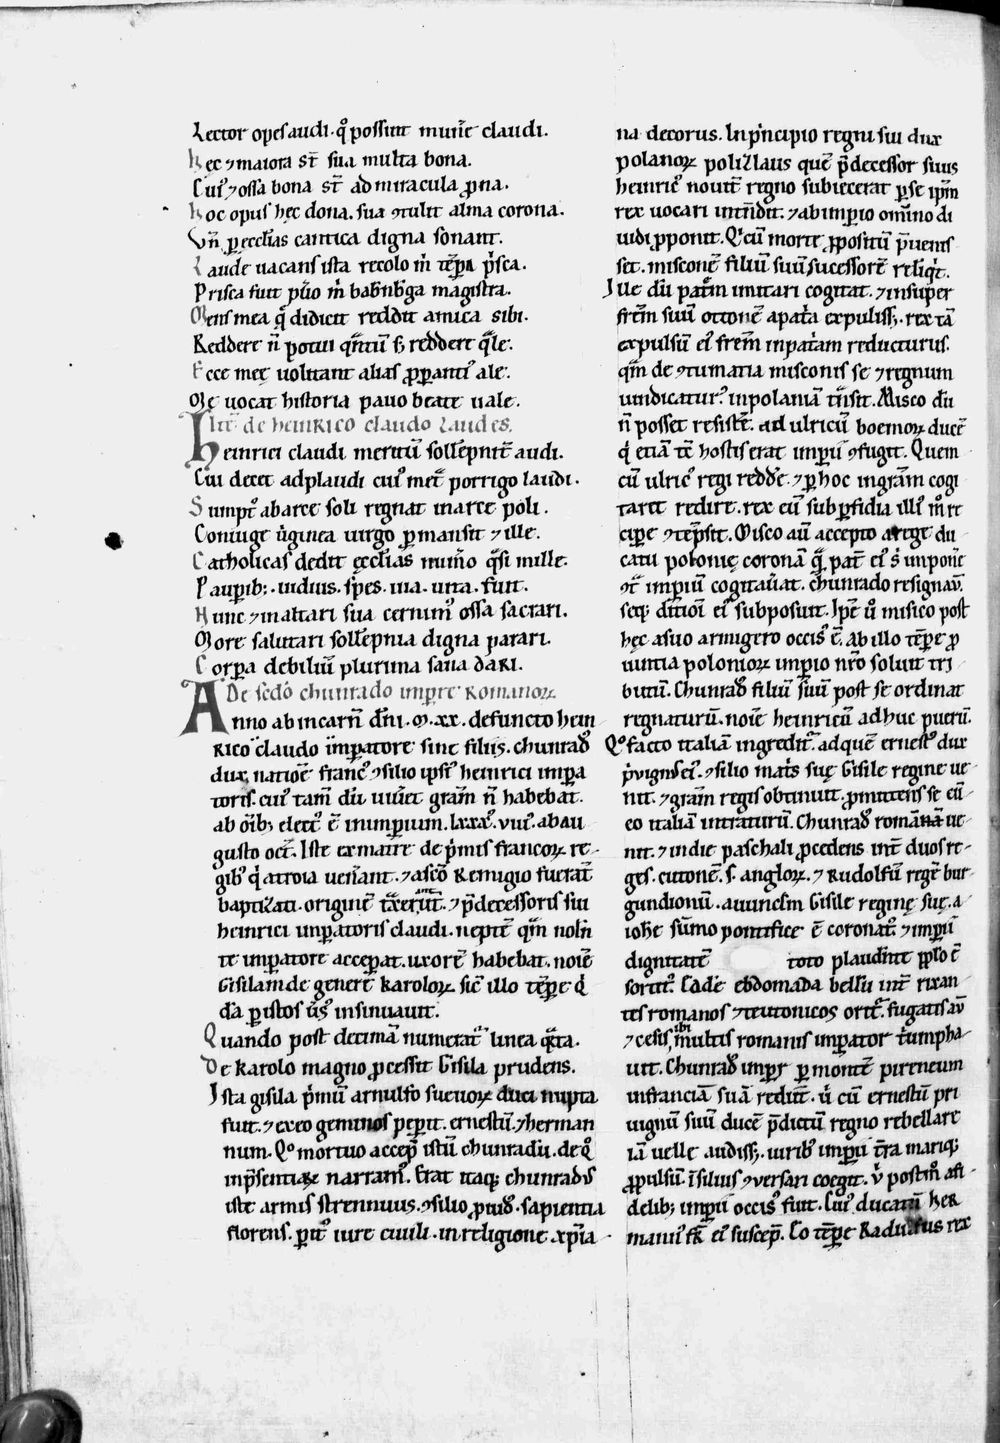 Lector opes audi. q̊ possint mun̄e claudi.
Hęc ⁊ maiora st̄ sua multa bona.
Cui᷒ ⁊ ossa bona st̄ ad miracula ꝓna.
Hoc opus hęc dona. sua ꝯtulit alma corona.
Vn̄ ꝑ ecclias cantica digna sonant.
Laude uacans ista recolo m̄ tēpa p̄sca.
Prisca fuit pu̅o m̄ bab̄nb̄ga magistra.
Mens mea q̄ didicit reddit amica sibi.
Reddere n̄ potui qn̄tū s; reddere q̄le.
Ecce meę uolitant alias ꝓꝑanti᷒ ale.
Me uocat historia pauo beate uale.
Itē de heinrico claudo laudes.
Heinrici claudi meritū sollēpnit̄ audi.
Cui decet adplaudi cui᷒ met̄ porrigo laudi.
Sumpt᷒ ab arce soli regnat in arce poli.
Coniuge ūginea uirgo ꝑmansit ⁊ ille.
Catholicas dedit ęcclias num̄o q̄si mille.
Pauꝑib;. uidius. spes. uia. uita. fuit.
Hunc ⁊ maltari sua cernim᷒ ossa sacrari.
More salutari sollēpnia digna parari.
Corꝑa debiliū plurima sana dari.
De scd̄o chunrado imꝑre Romanoꝝ
Anno ab incarn̄ dn̄i .M.xx. defuncto hein
rico claudo imꝑatore sine filiis. chunrad᷒
dux natiōe franc᷒ ꝯsilio ipsi᷒ heinrici imꝑa
toris. cui᷒ tam̄ dū uiu̅et gram̄ n̄ habebat.
ab oīb; elect᷒ ē in imꝑium. lxxx᷒. vii᷒. ab au
gusto oct̄. Iste ex mat̄re de p̄mis francoꝝ re-
gib᷒ q̄ a troia ven̄ant. ⁊ a scō Remigio fuerāt
baptizati. originē t̄xerūt. ⁊ p̄decessoris sui
heinrici imꝑatoris claudi. neptē qm̄ nolēn
te imꝑatore acceꝑat. uxorē habebat. noīe
Gisilam de genere Karoloꝝ sic̄ illo tēꝑe q̄
dā ꝑ istos ūs᷒ insinuauit.
Quando post decimā numerat᷑ linea q̄rta.
De Karolo magno ꝓcessit Gisila prudens.
Ista gisila p̄mū arnulfo sueuoꝝ duci nupta
fuit. ⁊ ex eo geminos peꝑit. ernestū. ⁊ herman
num. Qo mortuo accep̄ istū chunradū. de q̊
in p̄sentiaꝝ narram᷒. Erat itaq; chunrad᷒
iste armis strennuus. ꝯsilio ꝓuid᷒. sapientia
florens. ꝑit᷒ iure ciuili. in religione xp̄ia-
na decorus. In p̄ncipio regni sui dux
polanoꝝ polizlaus quē p̄decessor suus
heinric᷒ nouit̄ regno subiecerat ꝑ se ip̄m
rex uocari intēdit. ⁊ ab imꝑio om̄ino di
uidi ꝓponit. Q̊ cū morte ꝓpositū p̄uenis
set. misconē filiū suū sucessorē reliq̄t.
Ille dū pat̄m imitari cogitat. ⁊ insuper
frēm suū ottonē a pat̄a expuliss;. rex tā
expulsū ei᷒ frēm in pat̄am reducturus.
qm̄ de ꝯtumatia misconis se ⁊ regnum
uindicatur᷒ in polaniā t̄nsit. Misco dū
n̄ posset resist̄e. ad ulricū boemoꝝ ducē
q̄ etiā tē hostis erat imꝑii ꝯfugit. Quem
cū ulric᷒ regi redde. ⁊ ꝑ hoc in gram̄ cogi
taret redire. rex eū sub ꝑfidia illi᷒ n̄ re
ciꝑe ꝯtēpsit. Misco aū accepto a rege du
catu polonię coronā q̄ pat̄ ei᷒ s̄ imponēe
ꝯt̄ imꝑium cogitau̅at. chunrado resignau̅.
seq; ditiōi ei᷒ subposuit. Ipē u̅ misico post
hęc a suo armigero occis᷒ ē. Ab illo tēꝑe ꝓ
uintia polonioꝝ imꝑio nrō soluit tri
butū. Chunrad᷒ filiū suū post se ordinat
regnaturū. noīe heinricū adhuc puerū.
Q̊ facto italiā ingredit᷑. ad quē ernest᷒ dux
p̄uignus ei᷒. ꝯsilio mat̄s suę Gisile regine ue-
nit. ⁊ gram̄ regis obtinuit. ꝓmittens se cū
eo italiā intraturū. Chunrad᷒ romā ue-
nit. ⁊ in die paschali ꝓcedens int̄ duos re-
ges. cutonē. s. angloꝝ. ⁊ Rudolfū regē bur
gundionū. auunclm̄ Gisile reginę suę. a
ioh̄e sūmo pontifice ē coronat᷒. ⁊ imꝑii
dignitatē toto plaudēte ꝓplo ē
sortit᷒. Eadē ebdomada bellū int̄ rixan-
tes romanos ⁊ teutonicos ort̄ ē. fugatis aū
⁊ cesis ibi multis romanis imꝑator t̄umpha-
uit. Chunrad᷒ imꝑr ꝑ montē pireneum
in franciā suā rediit. u̅ cū ernestū pri
uignū suū ducē p̄dictū regno rebellare
iā uelle audiss;. uirib᷒ imꝑii t̄ra mariq;
ꝓpulsū. in siluis ꝯuersari coegit. V̄ postm̄ a fi
delib; imꝑii occis᷒ fuit. Cui᷒ ducatū her
mann᷒ fr̄ ei᷒ suscep̄. Eo tēꝑe Radulfus rex